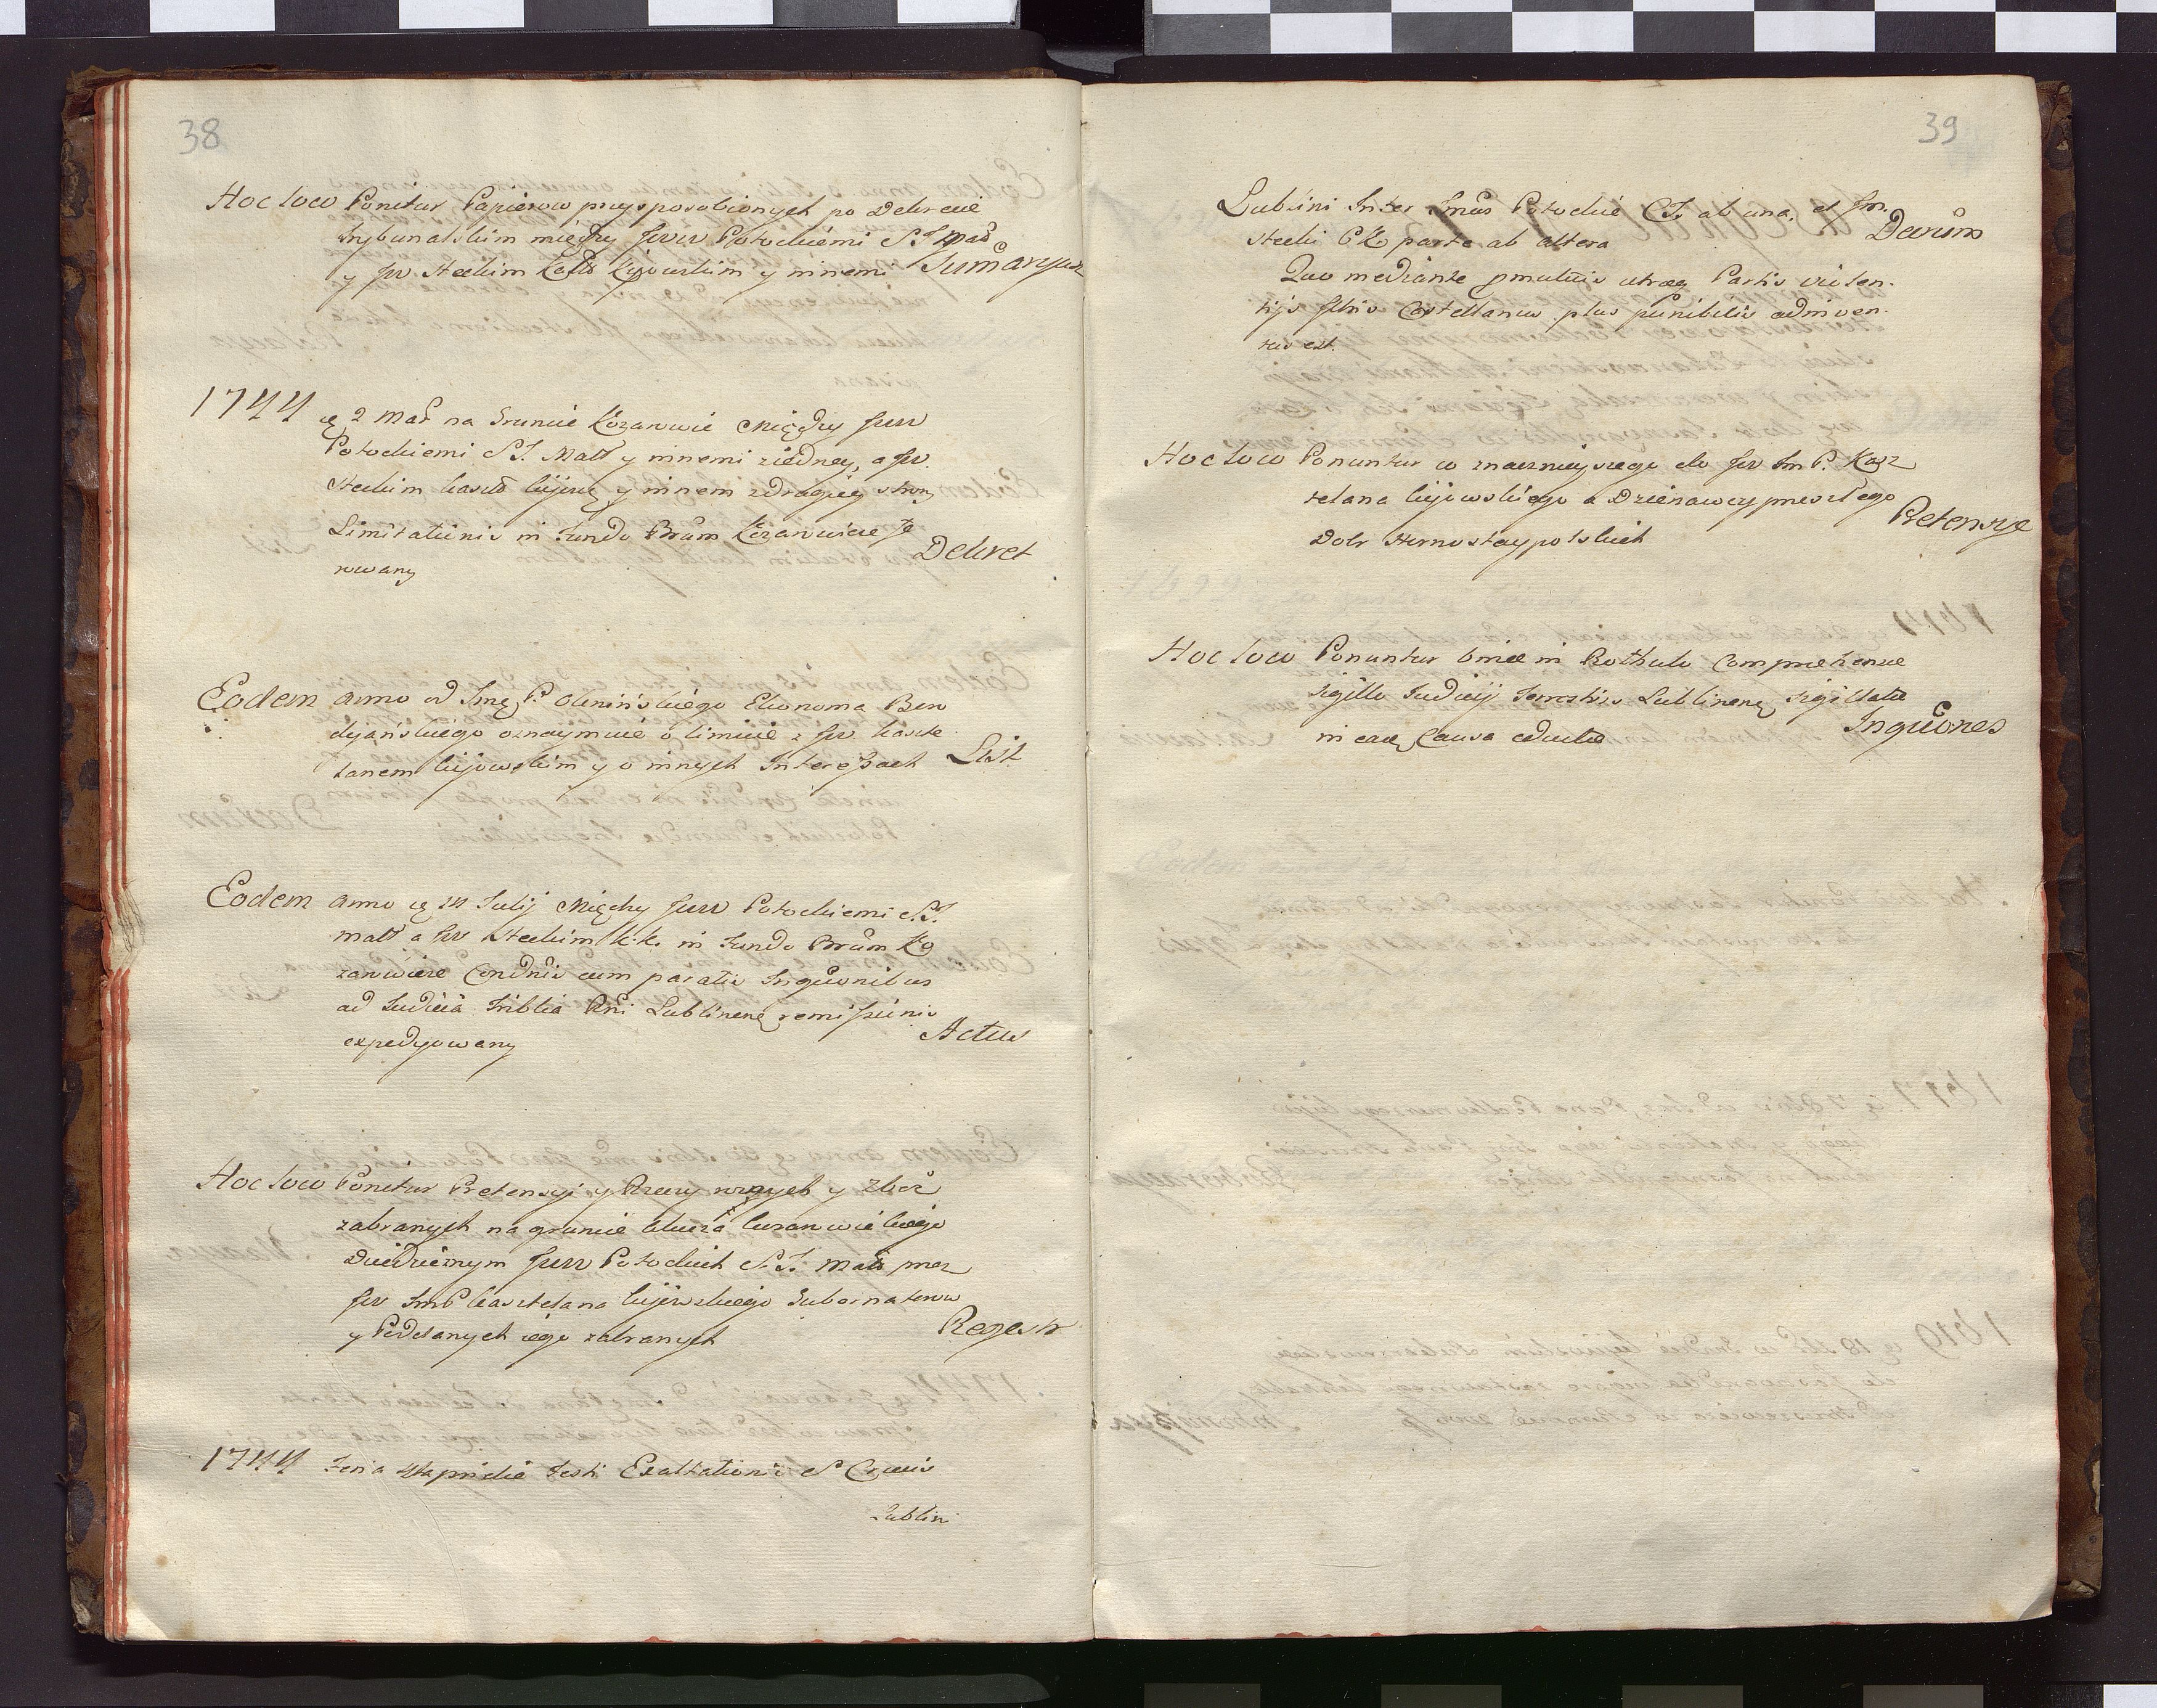 38
Hoc loco Ponitur Papierow przysposobionych po Dekrecie
Trybunalskim między Jww Potockiemi S.J. Mał
y Jw Steckim Kijowskim y innemi Sumaryusz
1744 2 Maÿ na Gruncie Kozarowic Między Jww
Potockiemi S J. Małł y innemi ziedney, a Jw.
Steckim Kasztł kijow y innem zdrugiey strony
Limitationis in Fundo Kozarowicze fe
rowany Dekret
Eodem anno od Jmę P. Olenińskiego Ekonoma Ben
dejańskiego oznaymuie o limicie z Jw. Kaszte
lanem kijowskim y o innych Interessach List
Eodem anno 14 Julij Między Jww Potockiemi S.J.
Małł a Jw Steckim k.k. in Fundo Ko
zarowicze Condnis cum paratis Inquönibus
ad Judicia Triblia Rni Lublinens remissionis
expedyowany Actus
Hoc loco Ponitur Pretensyi y Rzeczy roznych y zboż
zabranych na gruncie klucza kozarowickiego
Dziedzicznym Jww Potockich S.J. Małł przez
Jw JmP kasztelana kijowskiego Gubernatorow
y Poddanych iego zabranych Regestr
1744 Feria 4ta pridie Festi Exaltationis S Crucis
Lublini
39
Lublini Inter Potockie CJ. ab una, et Jm.
Stecki CK parte ab altera Decrum
Quo mediante pmutuis utraq Partis violen-
tijs Castellanus plus punibilis adinven-
tus est.
Hoc loco Ponuntur co znaczneyszego do Jw Jm P. Kasz
telana kijowskiego a Dzierzawcy przeszłego
Dobr Hornostaypolskich Pretensye
Hoc loco Ponuntur in Rothulo comprehensae
sigillo Judicij Terrestris Lublinens sigillatae
in Causa eductae Inquones